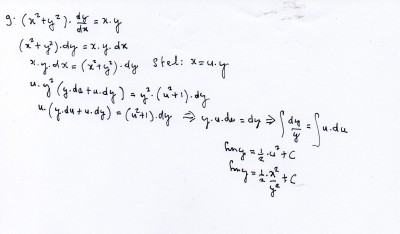 9. (x²+y²). dy/dx = x.y
(x²+y²).dy = x.y.dx
x.y.dx = (x²+y²).dy stel: x=u.y
u.y²(y.du+u.dy) = y².(u²+1).dy
u.(y.du+u.dy) = (u²+1).dy ⇒ y.u.du = dy ⇒ ∫ dy/y = ∫ u.du
ln y = 1/2.u²+C
ln y = 1/2.x²/y²+C